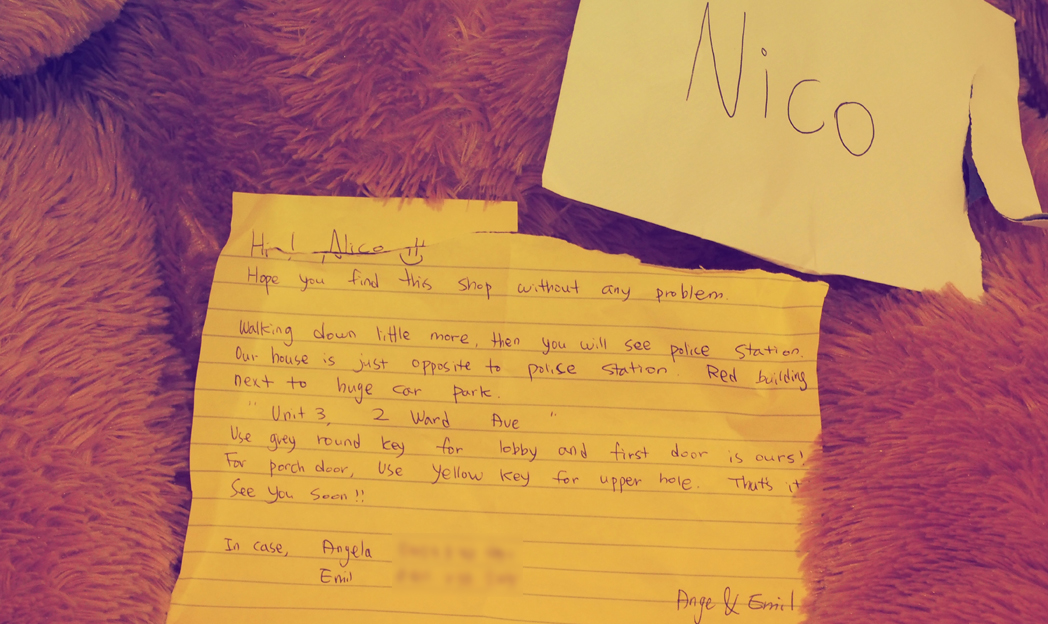 Nico
Hi~! Nico
Hope you find this shop without any problem.
Walking down little more, then you will see police station.
Our house is just opposite to polise station. Red building
next to huge car park.
" Unit 3, 2 Ward Ave "
Use grey round key for lobby and first door is ours!
For porch door, use yellow key for upper hole. That's it
See you soon!!
In case, Angela
Emil
Ange & Emil